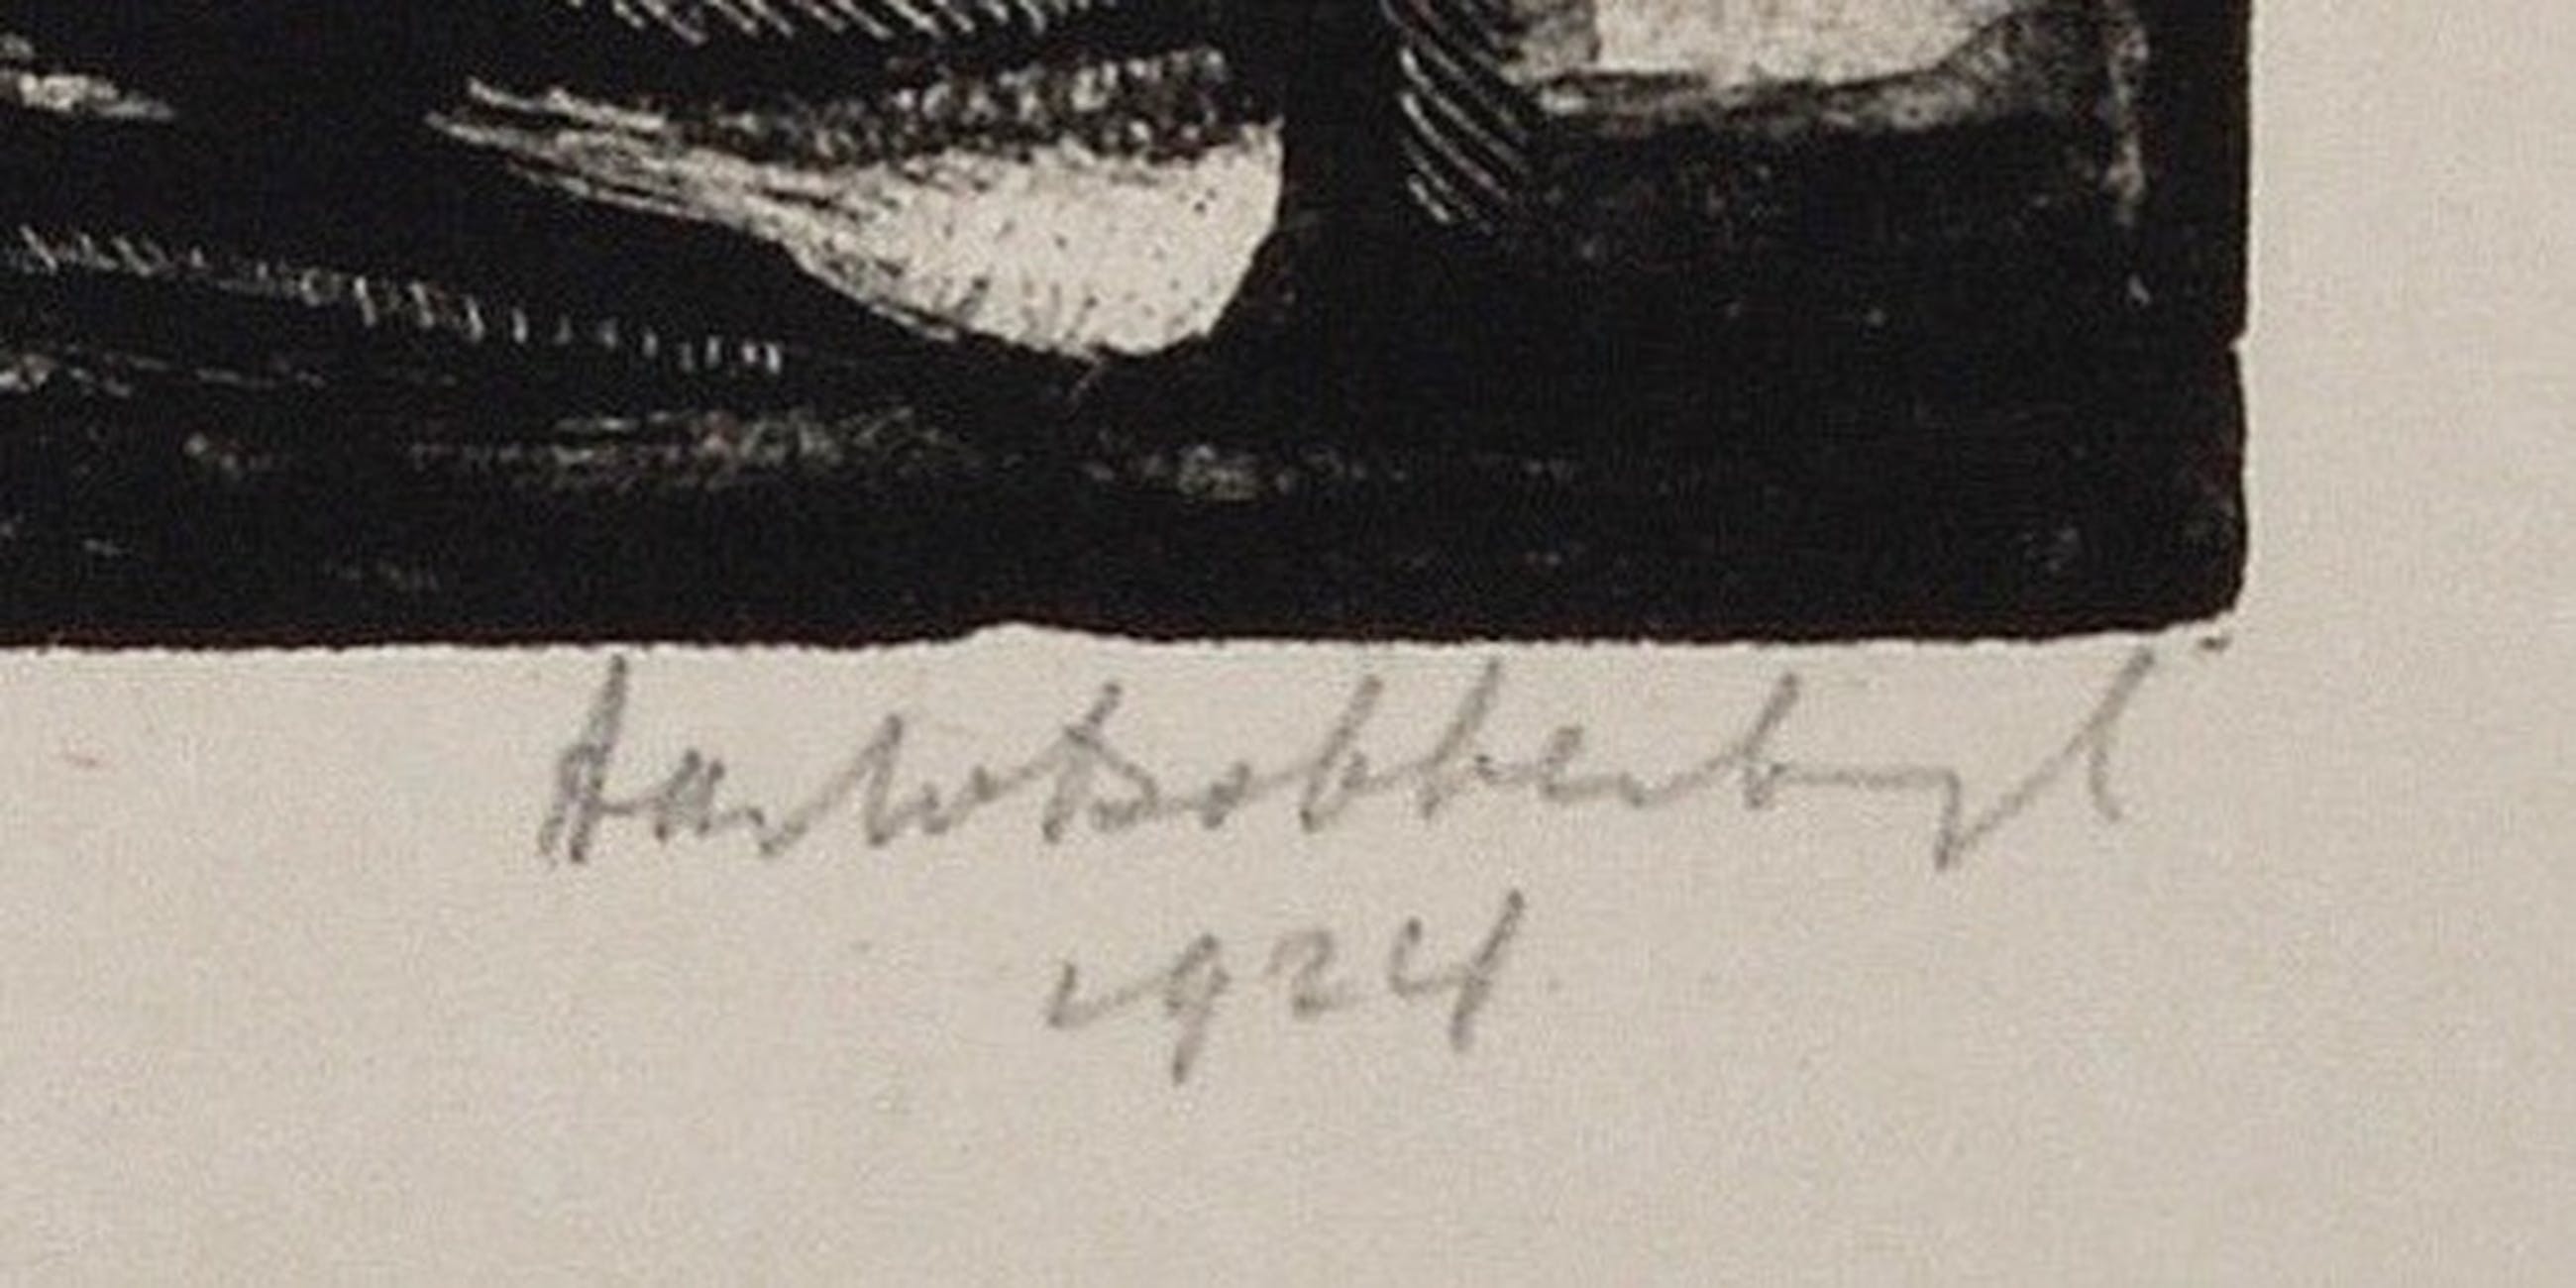 Aart v Dobbenburgh
1924